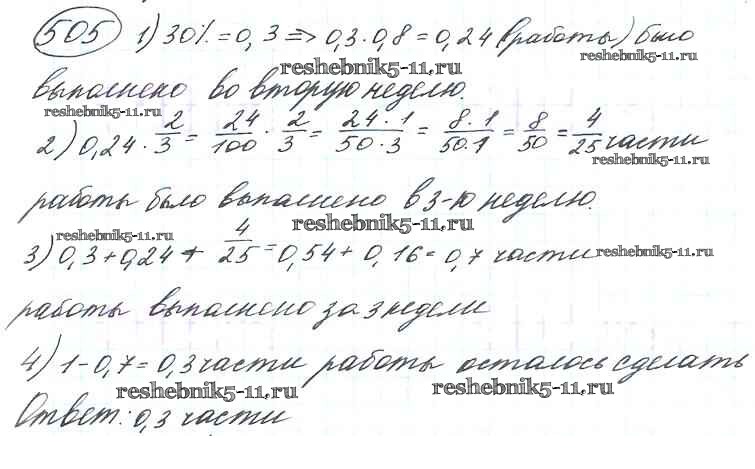 505 1) 30% = 0,3 => 0,3·0,8 = 0,24 (работы) было
reshebnik5-11.ru
выполнено во вторую неделю.
reshebnik5-11.ru
2) 0,24 · 2/3 = 24/100 · 2/3 = 24·1/50·3 = 8·1/50·1 = 8/50 = 4/25 части
reshebnik5-11.ru
работы было выполнено в 3-ю неделю.
reshebnik5-11.ru
reshebnik5-11.ru
3) 0,3 + 0,24 + 4/25 = 0,54 + 0,16 = 0,7 части
reshebnik5-11.ru
работы выполнено за 3 недели
4) 1 - 0,7 = 0,3 части работы осталось сделать
reshebnik5-11.ru reshebnik5-11.ru
Ответ: 0,3 части